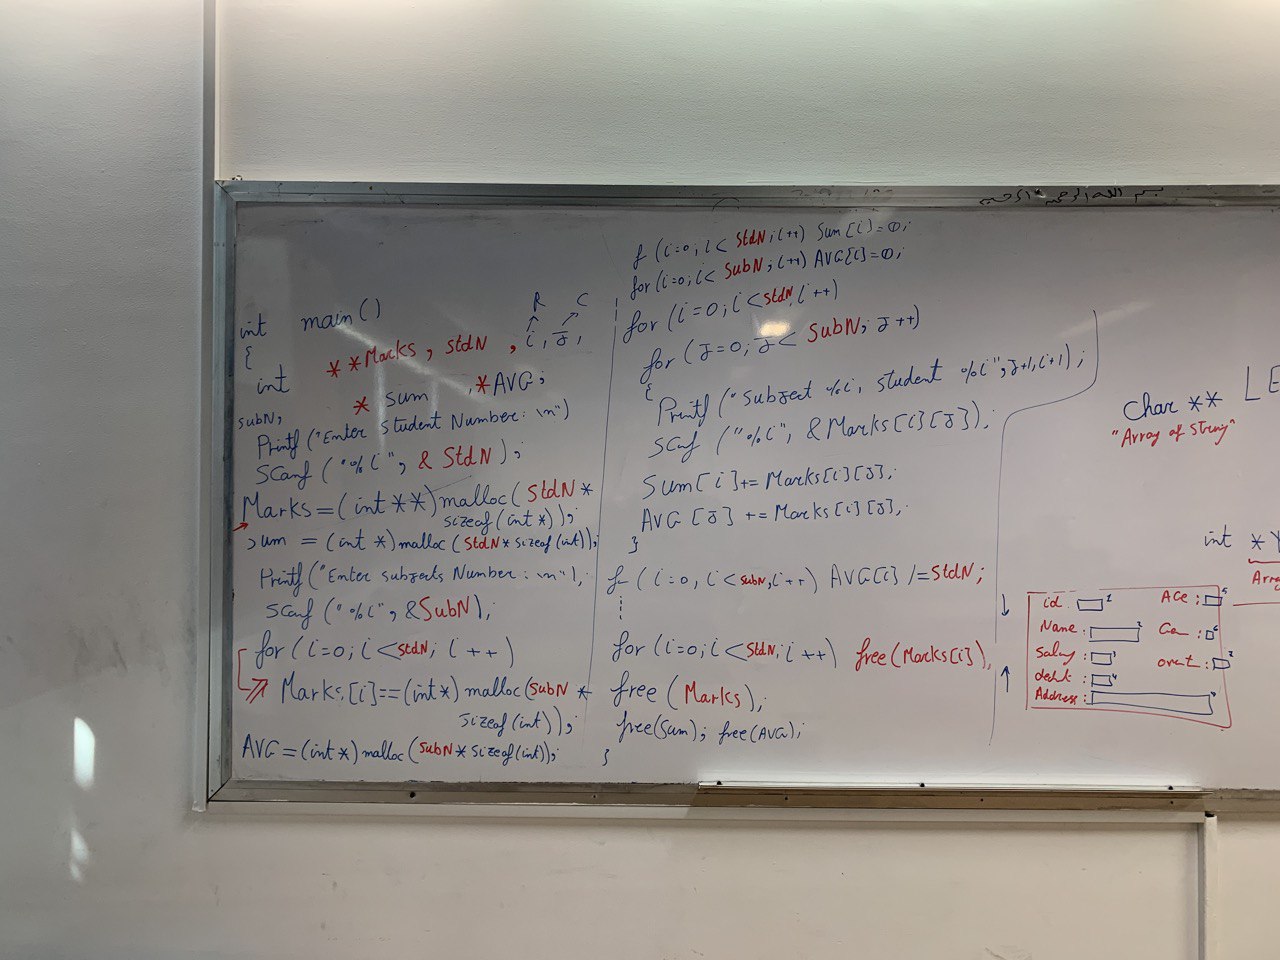 بسم الله الرحمن الرحيم
int main()
{
R C
int **Marks, StdN, i, J,
* sum, *AVG;
subN,
Printf("Enter Student Number: \n")
Scanf("%i", & StdN);
Marks=(int**)malloc(StdN*
sizeof(int*));
sum = (int*)malloc(StdN*sizeof(int));
Printf("Enter subjects Number: \n");
Scanf("%i", &SubN);
for(i=0;i<StdN; i++)
Marks[i]==(int*)malloc(SubN*
sizeof(int));
AVG=(int*)malloc(SubN*sizeof(int));
f (i=0;i< StdN;i++) Sum[i]=0;
for(i=0;i< SubN;i++) AVG[i]=0;
for (i=0;i<StdN;i++)
for (J=0; J< SubN; J++)
{
Printf("Subject %i, student %i",J+1,i+1);
Scanf ("%i", &Marks[i][J]);
Sum[i]+= Marks[i][J];
AVG[J] += Marks[i][J];
}
f (i=0, i<SubN,i++) AVG[i] /=StdN;
for(i=0;i<StdN;i++) free(Marks[i]),
free(Marks);
free(Sum); free(AVG);
}
Char ** LE
"Array of String"
int *
Arra
id 1
Name: 2
Salary: 3
debt: 4
Address:
Age: 5
Ge : 6